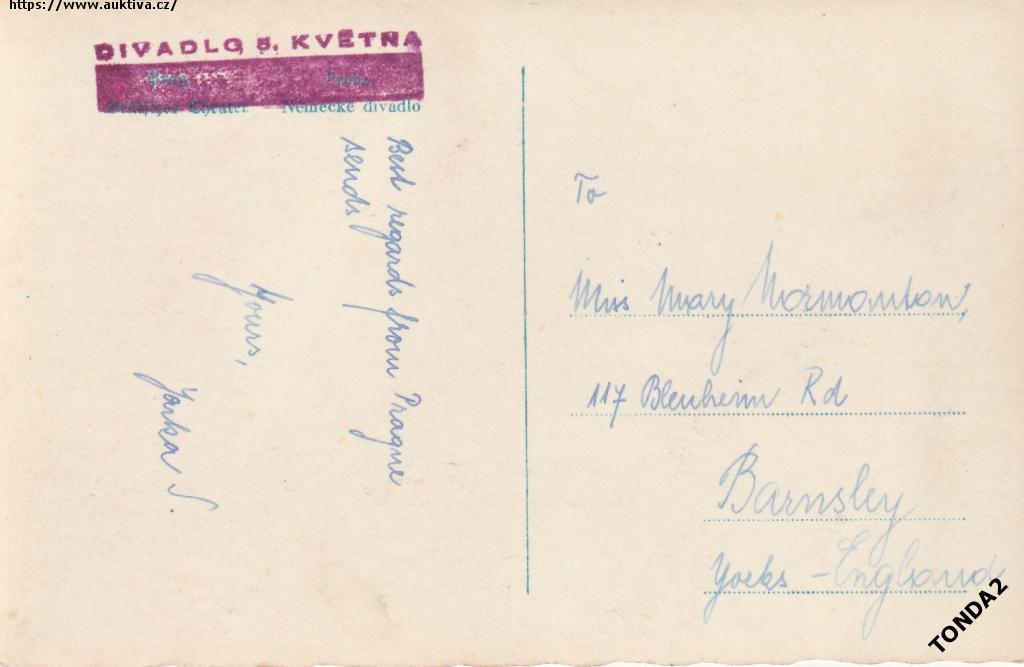 https://www.auktiva.cz/
DIVADLO 5. KVĚTNA
Prag Praha
Deutsches Theater Německé divadlo
Best regards from Prague
sends
Yours,
Jarka S.
To
Miss Mary Normanton,
117 Blenheim Rd
Barnsley
Yorks - England
TONDA2